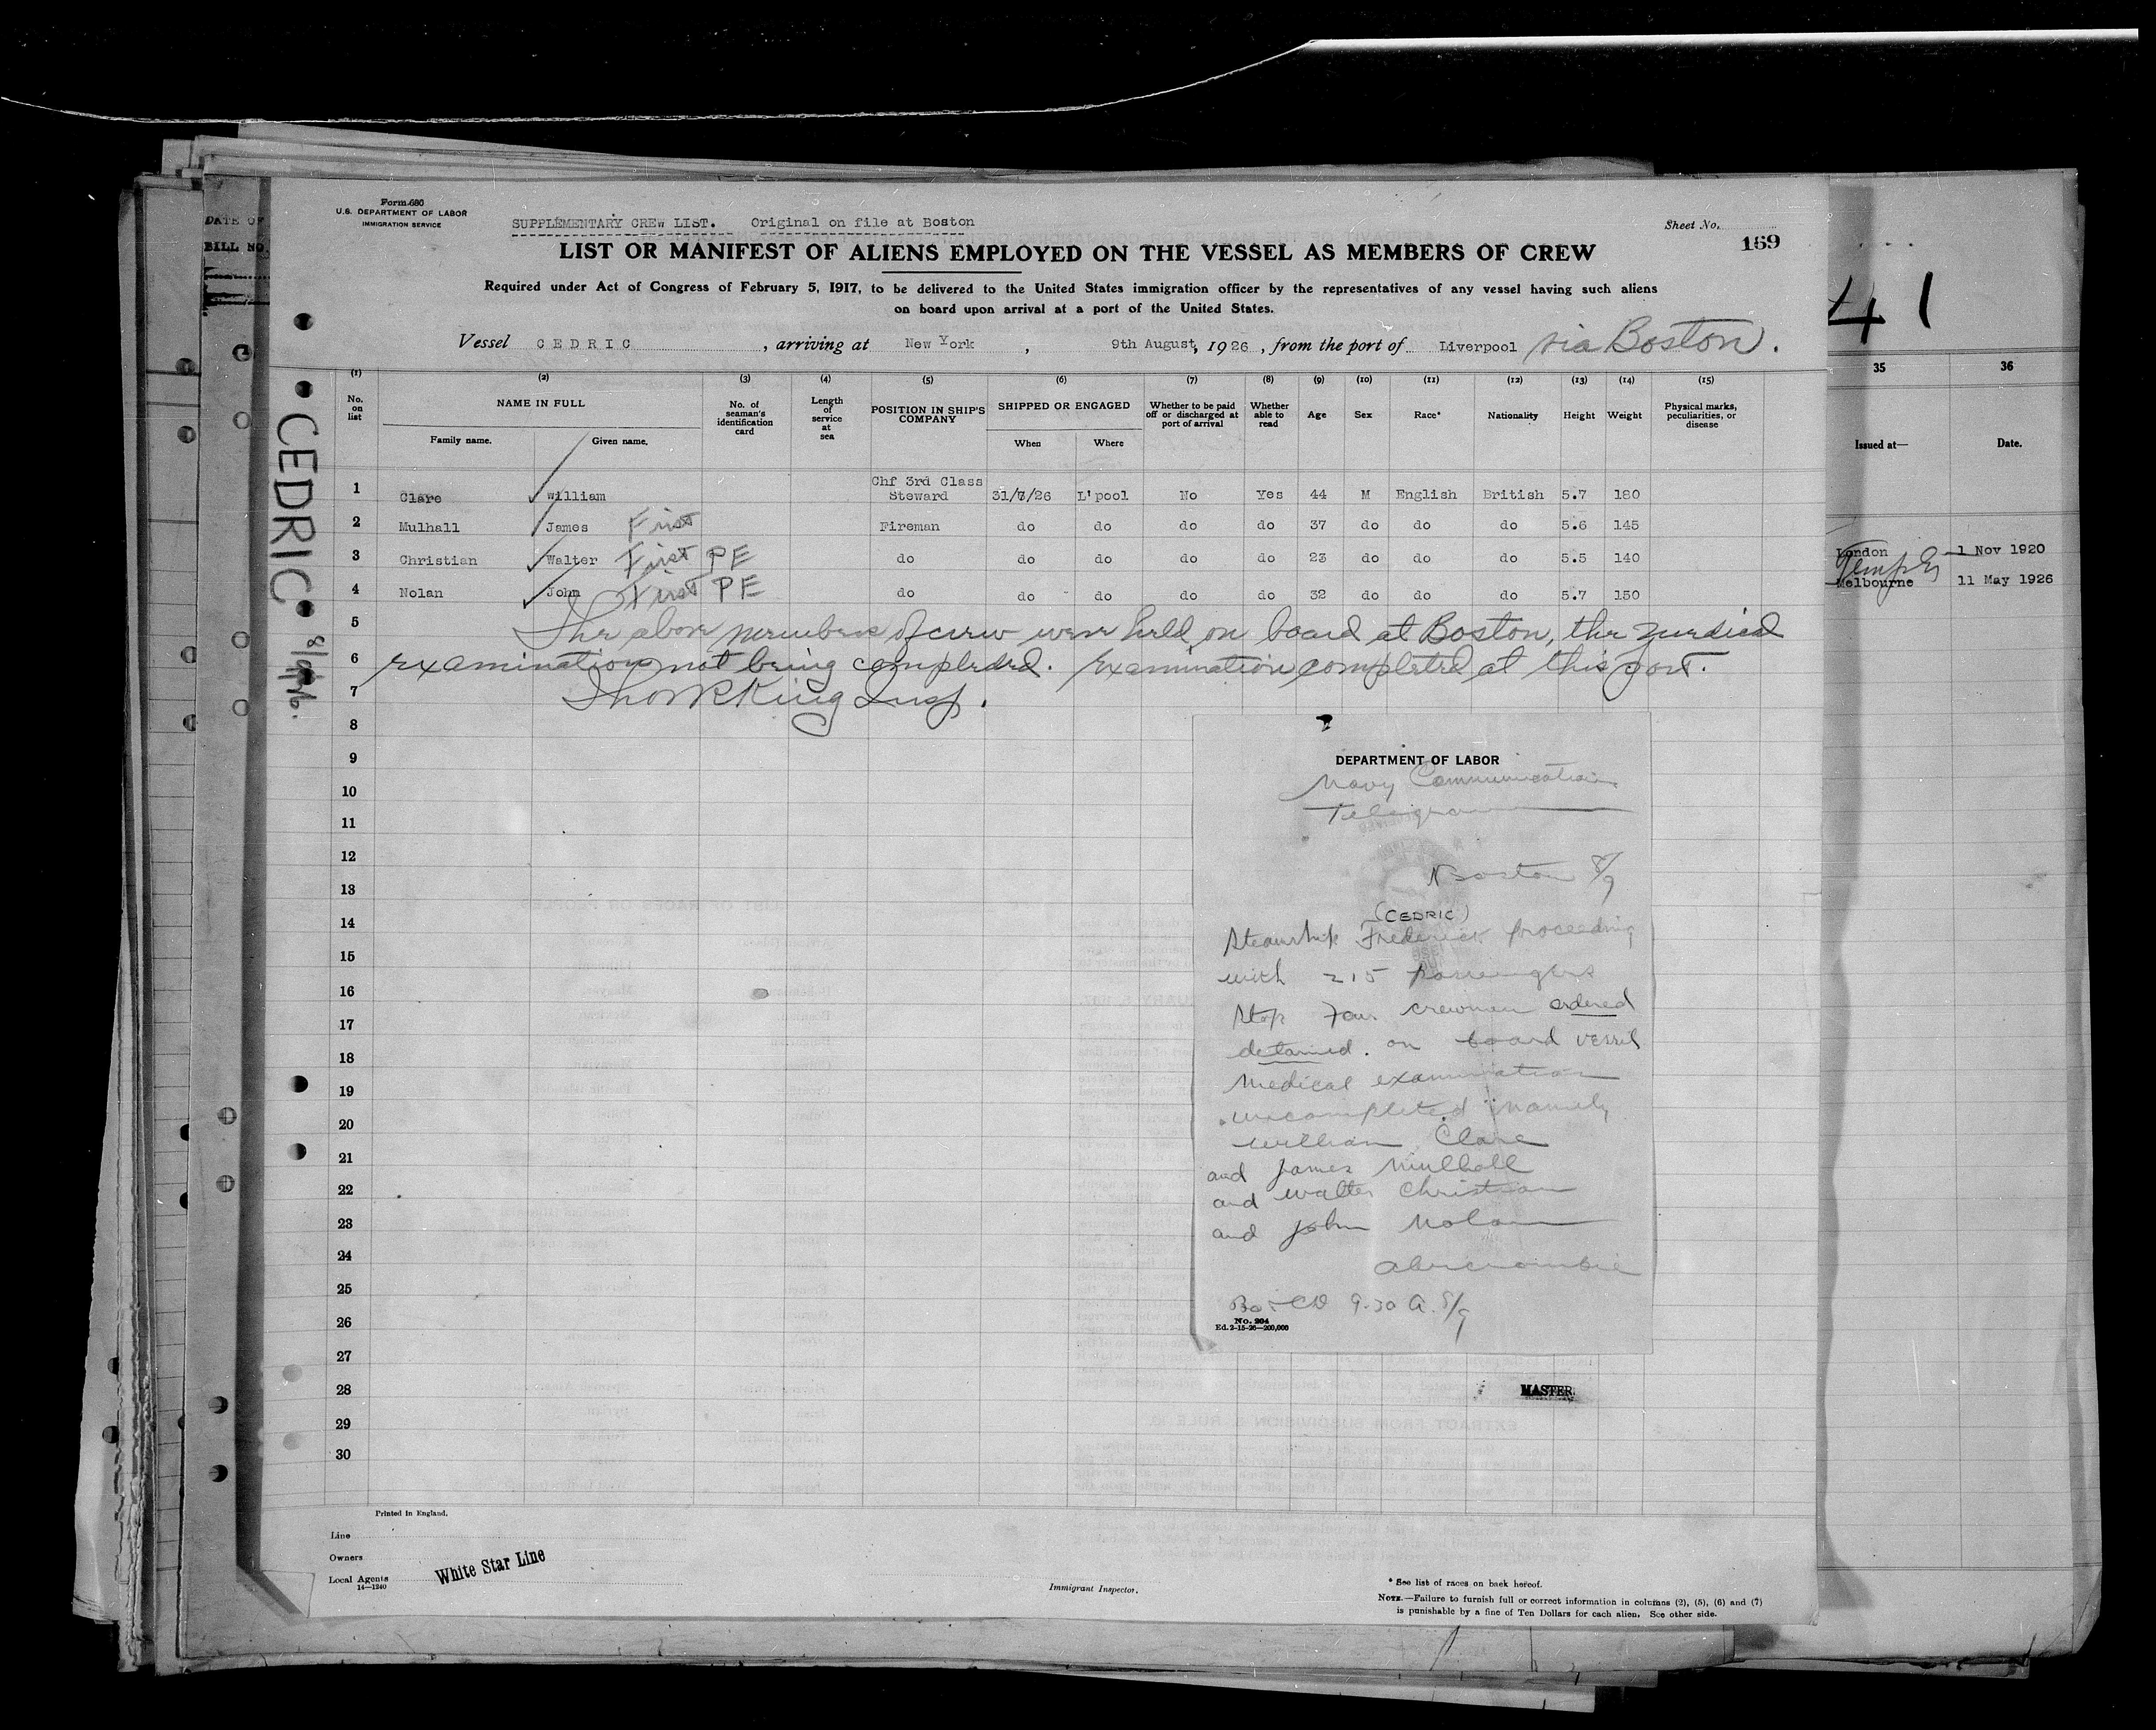 Form 680
U.S. DEPARTMENT OF LABOR
IMMIGRATION SERVICE
SUPPLEMENTARY CREW LIST. Original on file at Boston
Sheet No.
169
LIST OR MANIFEST OF ALIENS EMPLOYED ON THE VESSEL AS MEMBERS OF CREW
Required under Act of Congress of February 5, 1917, to be delivered to the United States immigration officer by the representatives of any vessel having such aliens
on board upon arrival at a port of the United States.
Vessel CEDRIC, arriving at New York, 9th August, 1926, from the port of Liverpool via Boston.
(1) (2) (3) (4) (5) (6) (7) (8) (9) (10) (11) (12) (13) (14) (15)
No. on list NAME IN FULL Family name. Given name. No. of seaman's identification card Length of service at sea POSITION IN SHIP'S COMPANY SHIPPED OR ENGAGED When Where Whether to be paid off or discharged at port of arrival Whether able to read Age Sex Race* Nationality Height Weight Physical marks, peculiarities, or disease
1 Clare William Chf 3rd Class Steward 31/7/26 L'pool No Yes 44 M English British 5.7 180
2 Mulhall James First Fireman do do do do 37 do do do 5.6 145
3 Christian Walter First PE do do do do do 23 do do do 5.5 140
4 Nolan John First PE do do do do do 32 do do do 5.7 150
5 The above members of crew were held on board at Boston, the medical
6 examination not being completed. Examination completed at this port.
7 King Insp.
8
9
10
11
12
13
14
15
16
17
18
19
20
21
22
23
24
25
26
27
28
29
30
DEPARTMENT OF LABOR
Navy Communication
Telegram
Boston 8/9
(CEDRIC)
Steamship Frederick proceeding
with 215 passengers
Stop Four crewmen ordered
detained. on board vessel
Medical examination
uncompleted namely
William Clare
and James Mulhall
and Walter Christian
and John Nolan
Abercrombie
9-30 A. 8/9
No. 204
Ed. 2-15-26—200,000
MASTER.
Printed in England.
Line
Owners
Local Agents
14—1240
White Star Line
Immigrant Inspector.
* See list of races on back hereof.
NOTE.—Failure to furnish full or correct information in columns (2), (5), (6) and (7)
is punishable by a fine of Ten Dollars for each alien. See other side.
CEDRIC
DATE OF
BILL NO.
41
35 36
Issued at— Date.
London 1 Nov 1920
Melbourne 11 May 1926